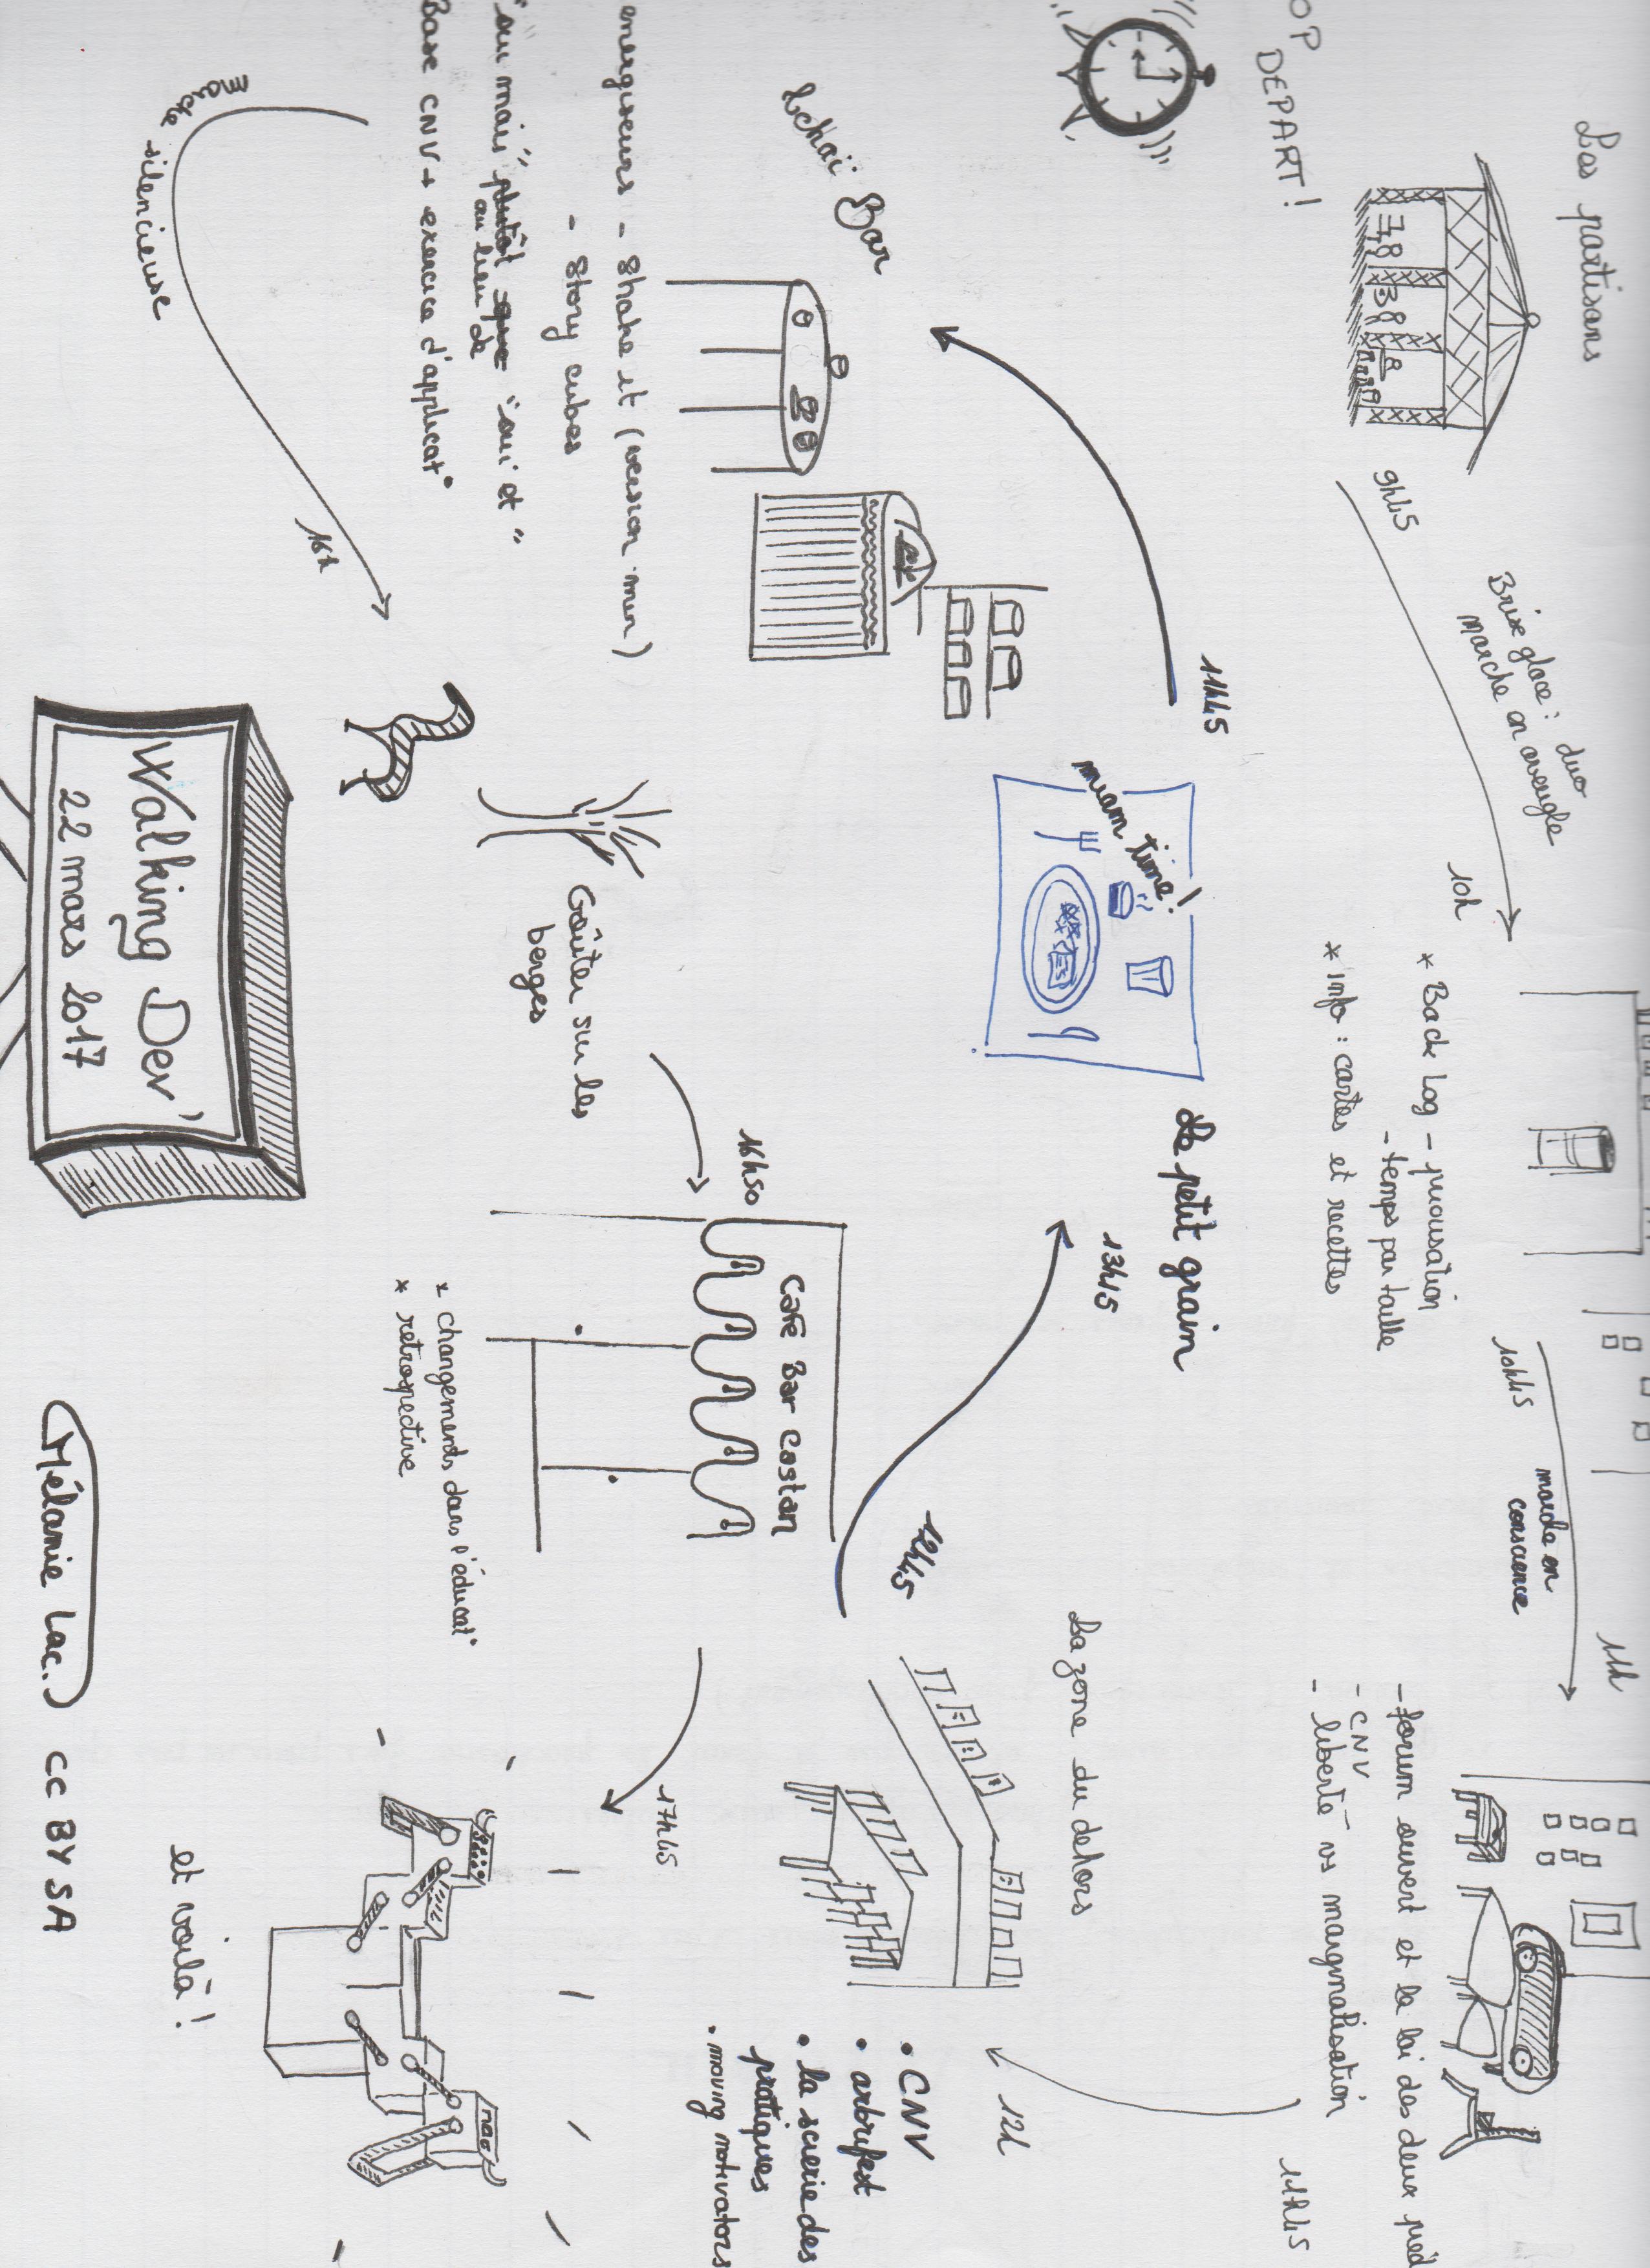 OP
DEPART!
Les partisans
9h45
Brise glace: duo
marche en aveugle
10h
* Back Log - priorisation
- temps par taille
* info : cartes et recettes
10h45
marche en
conscience
11h
- forum ouvert et la loi des deux pied
- CNV
- liberté vs marginalisation
11h45
12h
La zone du dehors
• CNV
• arbrifest
• la scierie des
pratiques
• moving motivators
12h45
13h45
Le petit grain
miam time!
Lchaï Bar
energiseurs - Shake it (version mer)
- Story cubes
"oui mais" plutôt que "oui et"
au lieu de
Base CNV + exercice d'applicat°
marche silencieuse
16h
Goûter sur les
berges
16h50
Café Bar Costan
* changements dans l'éducat°
* retrospective
17h45
et voilà!
Walking Dev'
22 mars 2017
Mélanie Lac. CC BY SA